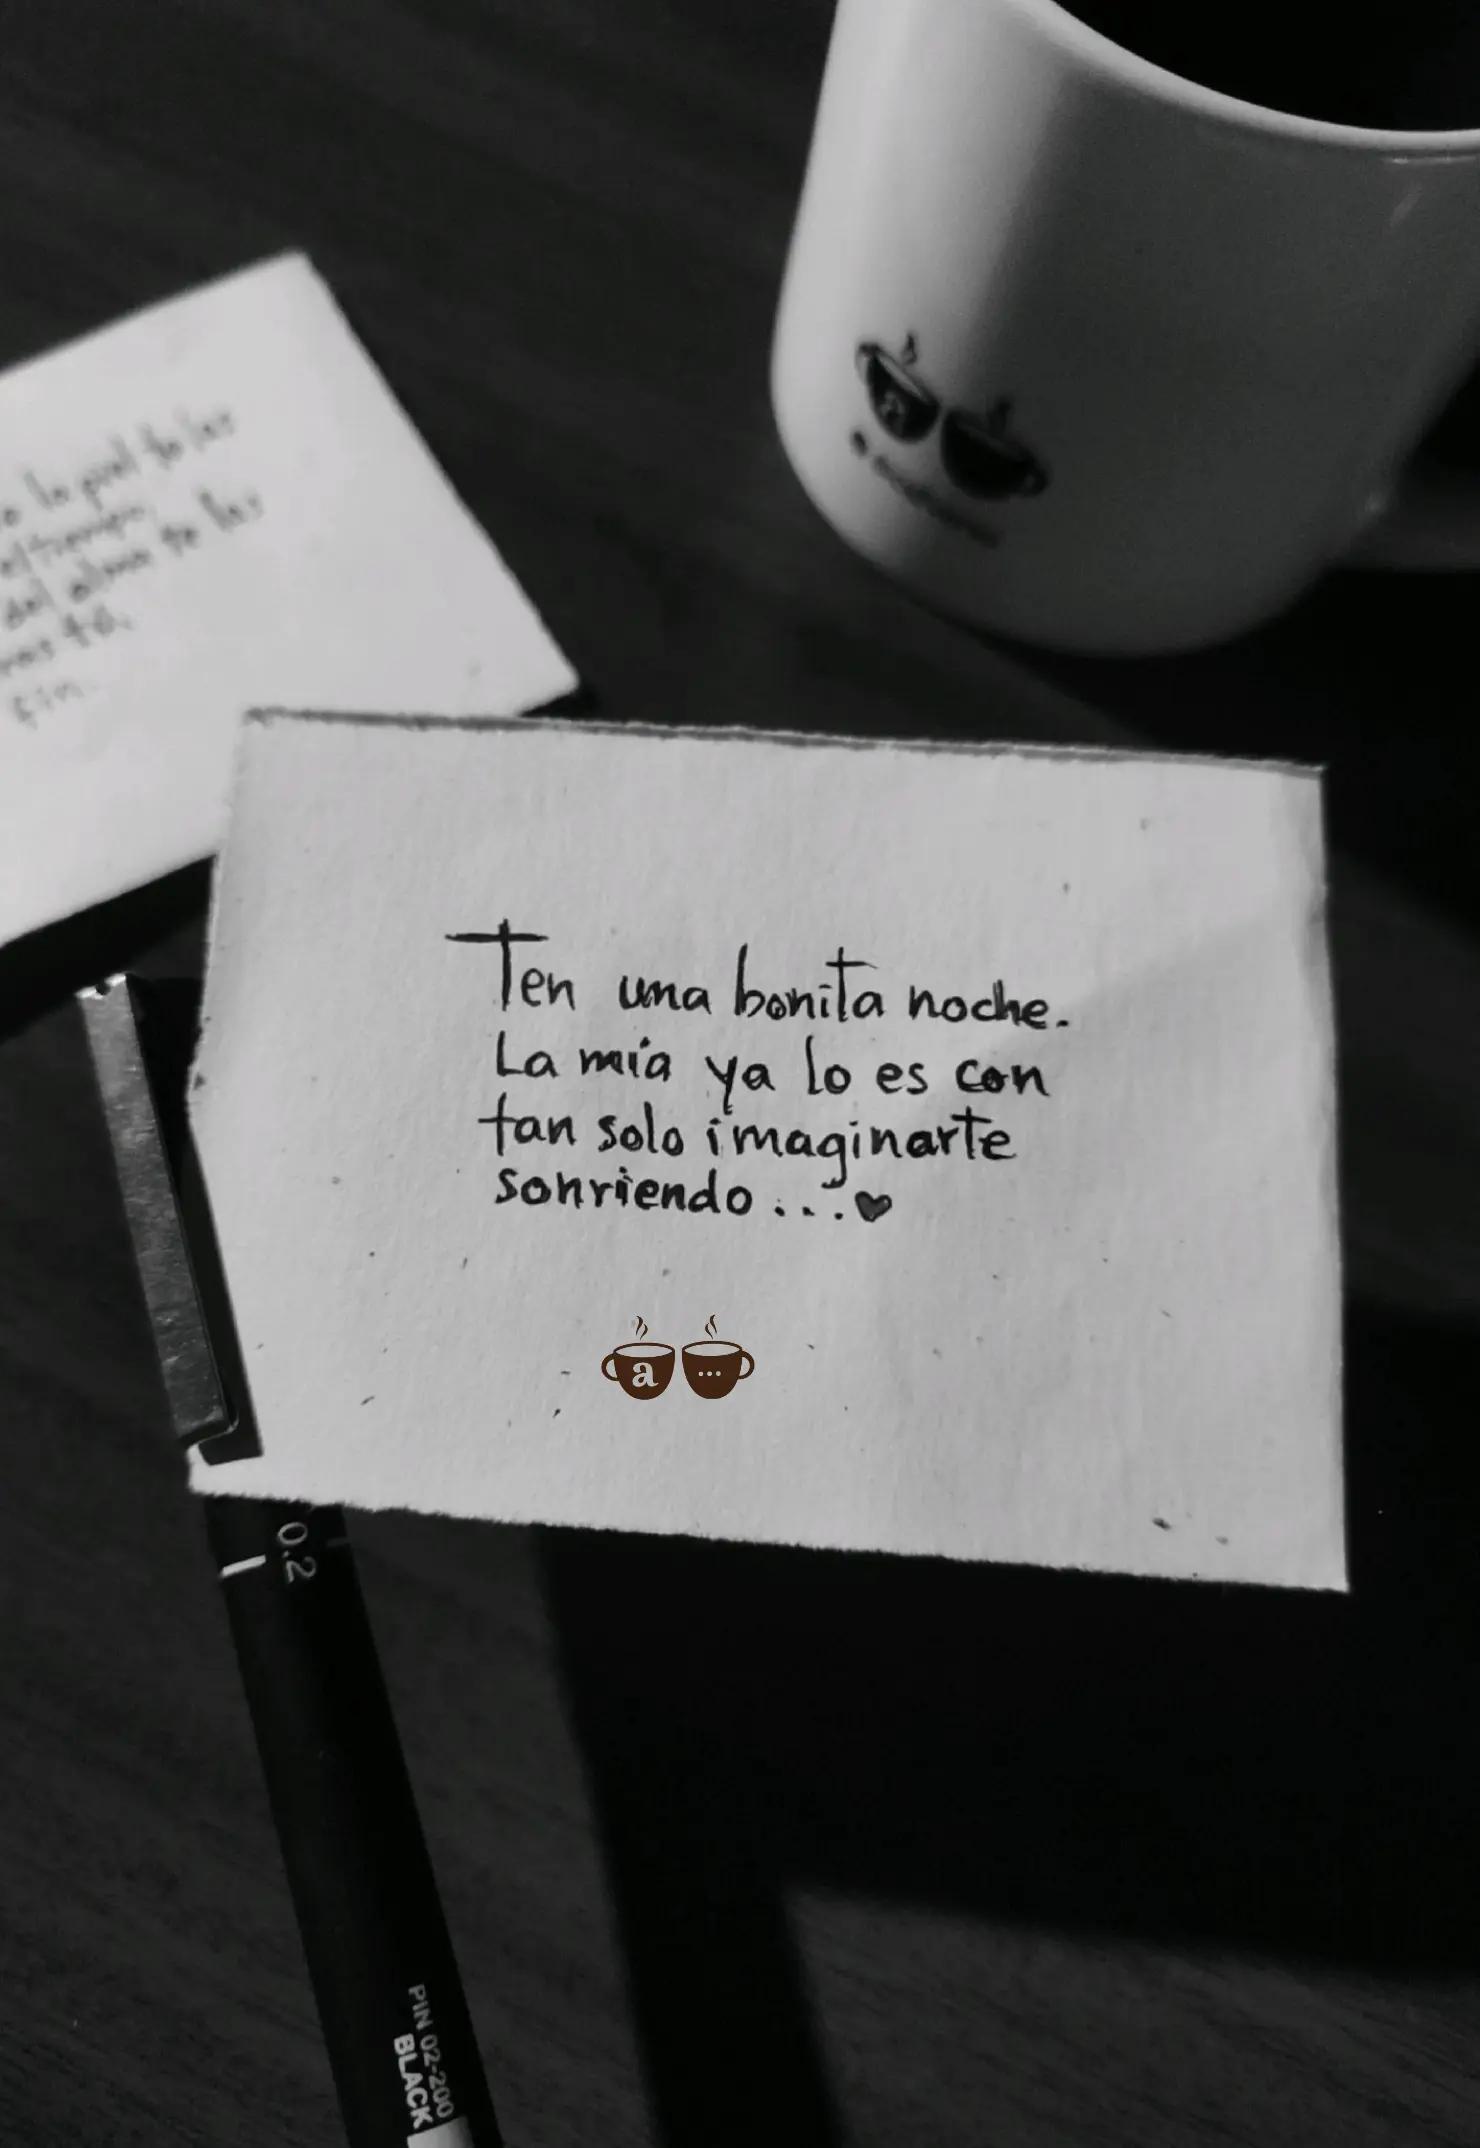 la piel te las
el tiempo,
del alma te las
tú.
fin.
Ten una bonita noche.
La mía ya lo es con
tan solo imaginarte
sonriendo...♥
a ...
0.2
PIN 02-200
BLACK